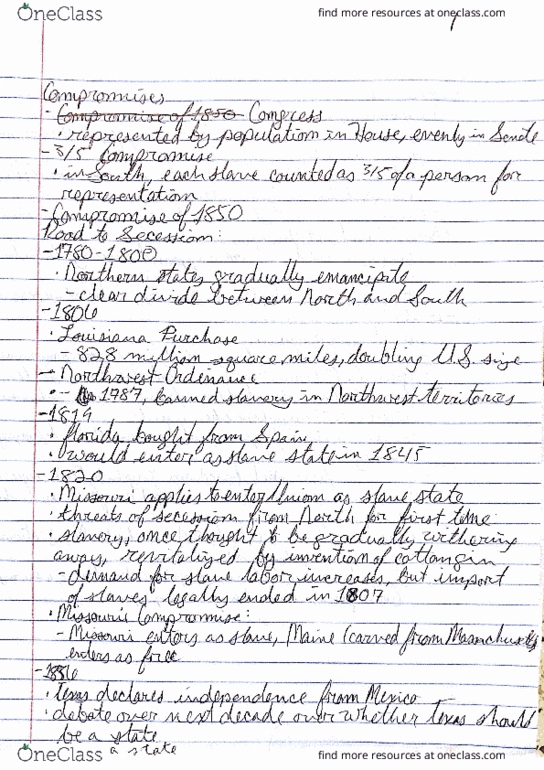 OneClass
find more resources at oneclass.com
Compromises
- Compromise of 1850 Congress
• represented by population in House, evenly in Senate
- 3/5 Compromise
• in South, each slave counted as 3/5 of a person for
representation
- Compromise of 1850
Road to Secession:
- 1780-1800
• Northern states gradually emancipate
- clear divide between North and South
- 1806
• Louisiana Purchase
- 828 million square miles, doubling U.S. size
- Northwest Ordinance
• - 1787, banned slavery in Northwest territories
- 1819
• Florida bought from Spain
• would enter as slave state in 1845
- 1820
• Missouri applies to enter Union as slave state
• threats of secession from North for first time
• slavery, once thought to be gradually withering
away, revitalized by invention of cotton gin
- demand for slave labor increases, but import
of slaves legally ended in 1807
• Missouri Compromise:
- Missouri enters as slave, Maine (carved from
enters as free
- 1836
• Texas declares independence from Mexico
• debate over next decade over whether Texas should
be a state
a state
OneClass
find more resources at oneclass.com